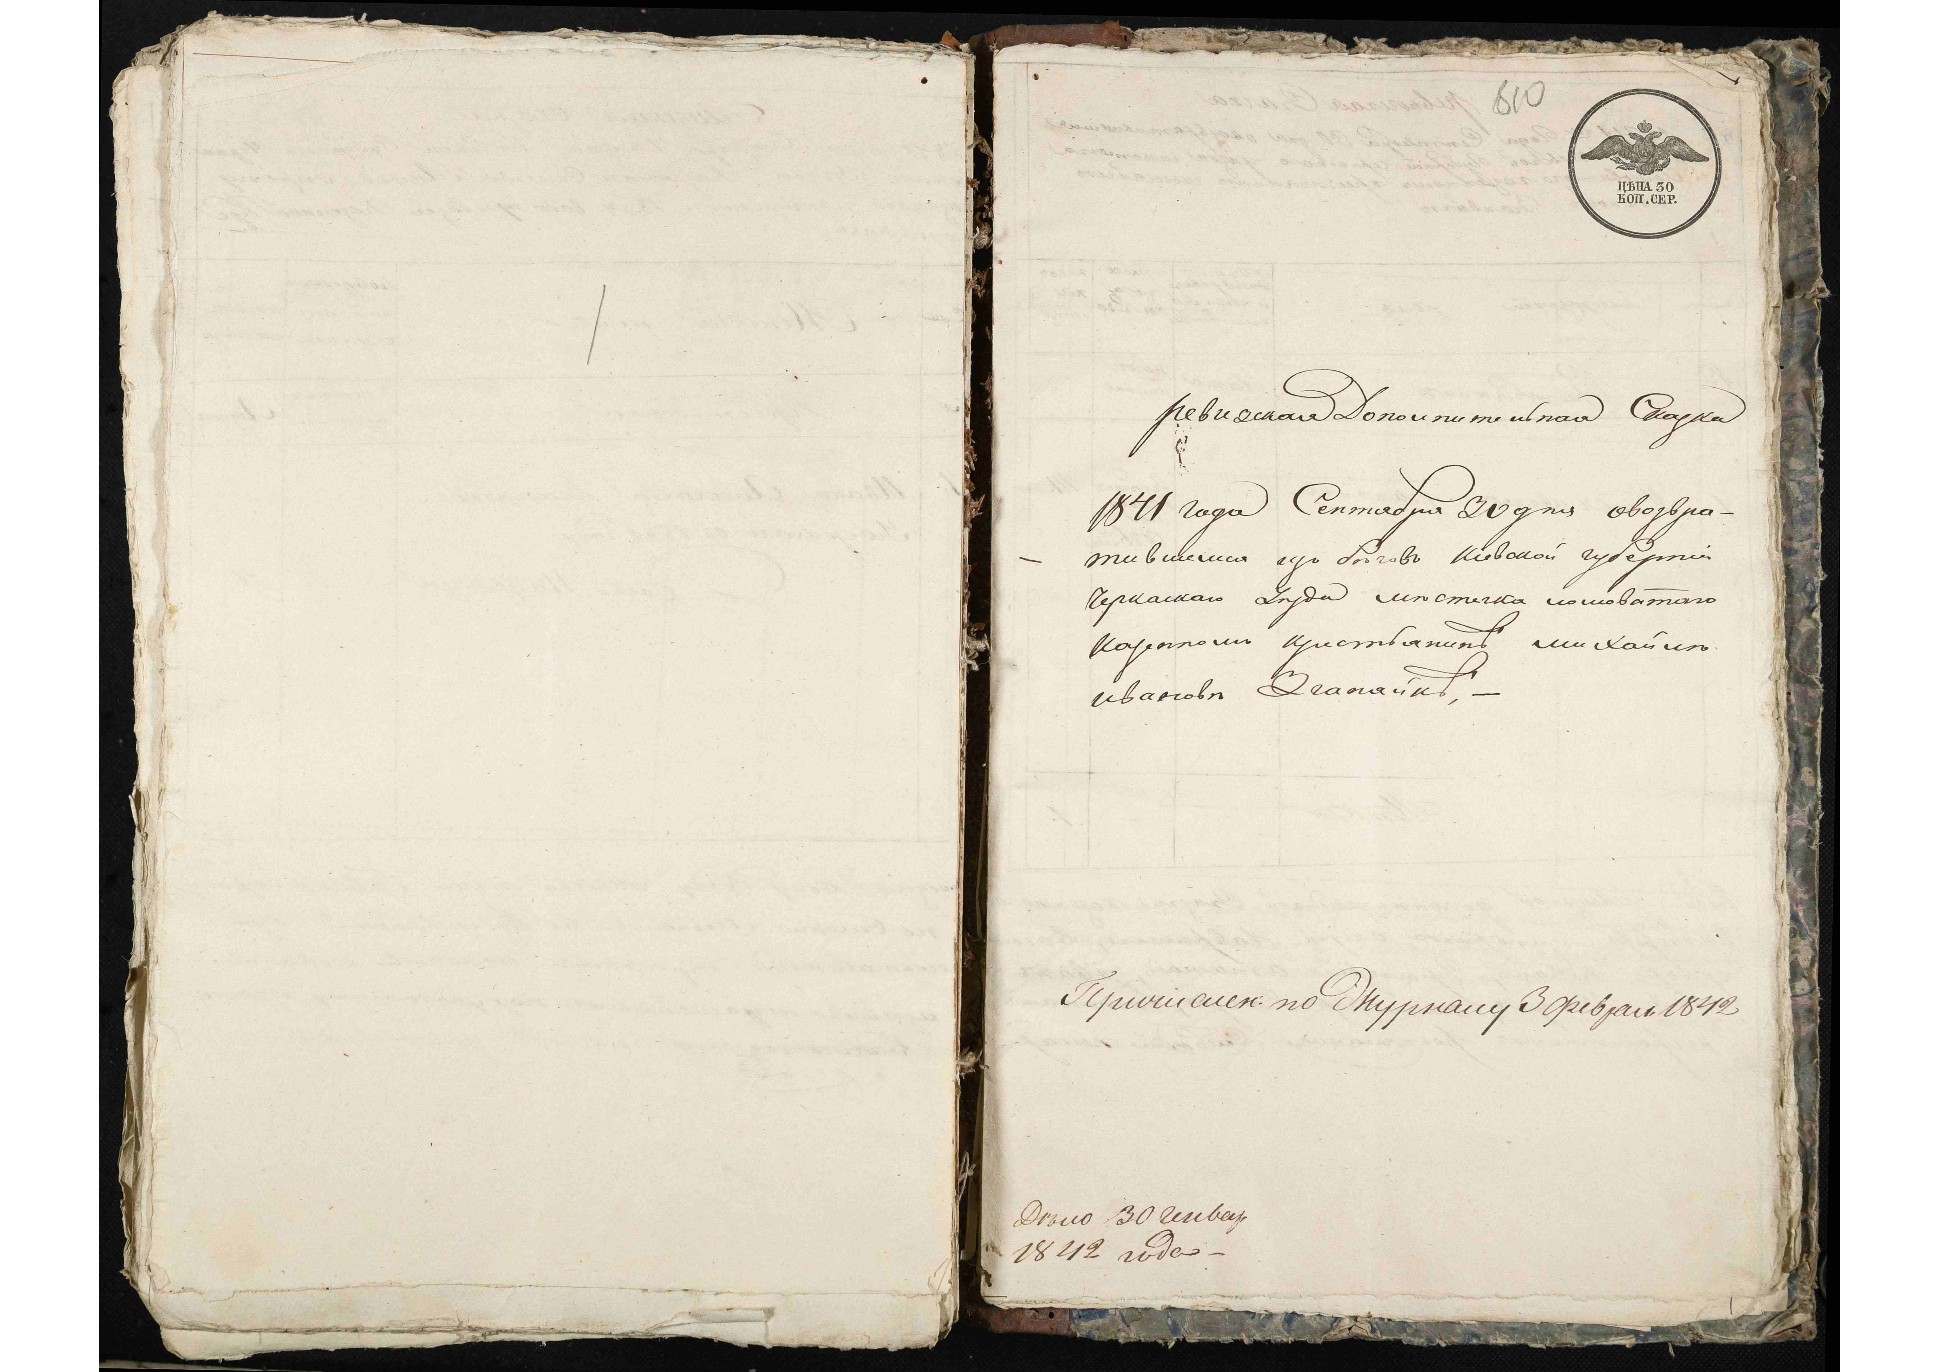 610
ЦѢНА 30
КОП. СЕР.
Ревизская Дополнительная Сказка
1841 года Сентября 30 дня овозвра-
тившемся изъ бѣговъ Киевской губернiи
Черкаскаго уезда мѣстечка ломоватаго
казенномъ крестьянинѣ михайлѣ
ивановѣ Згапайкѣ, —
Причислен. по Журналу 3 феврал 1842
Дѣло 30 Генвар
1842 года —